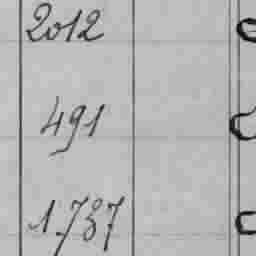 2012
491
1.737